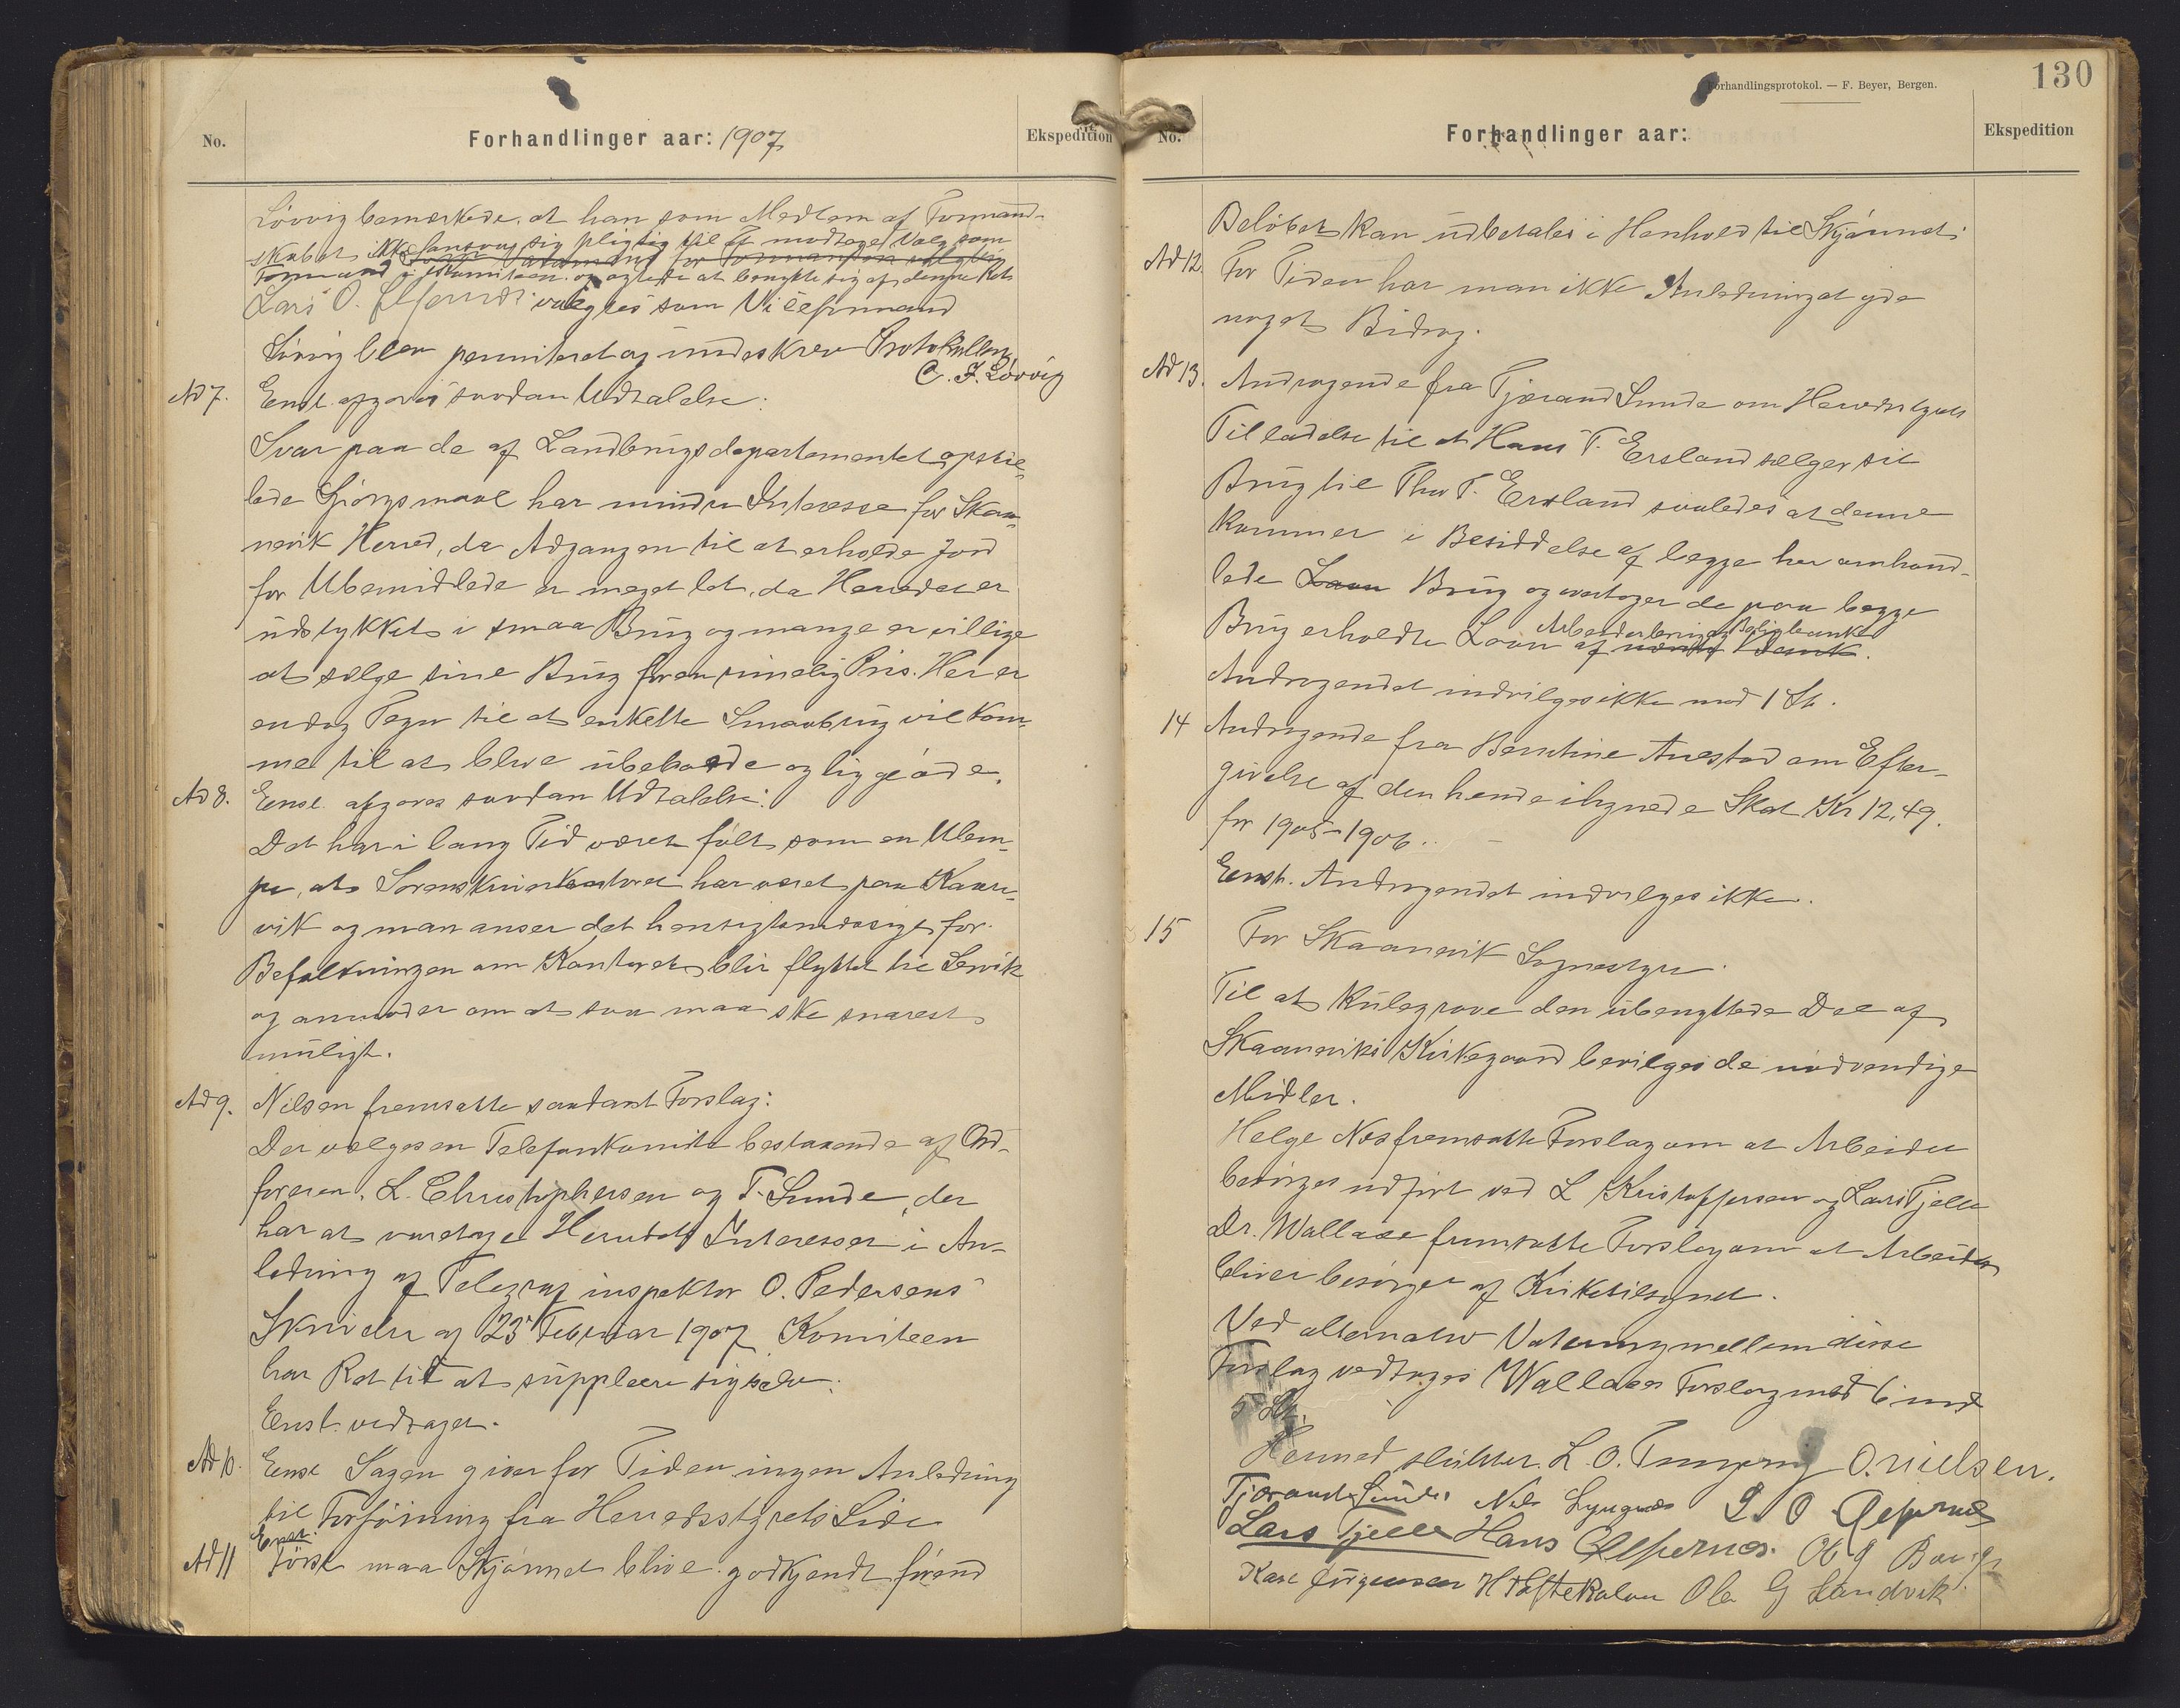 No.
Forhandlinger aar: 1907
Ekspedition
Løvvig bemærkede, at han som Medlem af Formand-
skabet ikke ansaa sig pligtig til at modtage Valg som
Formand i Komiteen og agtede at benytte sig af denne Ret
Lars O. Elfernes valgtes som Viceformand
Løvvig blev permiteret og underskrev Protokollen.
C. J. Løvvig
Ad 7. Enst. afgaves saadan Udtalelse:
Svar paa de af Landbrugsdepartementet opstil-
lede Spørgsmaal har mindre Interesse for Skaa-
nevik Herred, da Adgangen til at erholde Jord
for Ubemidlede er meget let, da Herredet er
udstykket i smaa Brug og mange er villige
at sælge sine Brug for en rimelig Pris. Her er
endog Tegn til at enkelte Smaabrug vil kom-
me til at blive ubeboede og ligge øde.
Ad 8. Enst. afgaves saadan Udtalelse:
Det har i lang Tid været følt som en Ulem-
pe, at Sorenskriverkontoret har været paa Kaare-
vik og man anser det hensigtsmæssigt for
Befolkningen om Kontoret blir flyttet til Lervik
og anmoder om at saa maa ske snarest
muligt.
Ad 9. Nilsen fremsatte saadant Forslag:
Der vælges en Telefonkomite bestaaende af Ord-
føreren, L. Christophersen og T. Sunde, der
har at varetage Herredets Interesser i An-
ledning af Telegrafinspektør O. Pedersens
Skrivelse af 23 Februar 1907. Komiteen
har Ret til at supplere sig selv.
Enst. vedtaget.
Ad 10. Enst Sagen giver for Tiden ingen Anledning
til Forføining fra Herredsstyrets Side
Enst.
Ad 11 Først maa Skjønnet blive godkjendt førend
Forhandlingsprotokol. — F. Beyer, Bergen.
130
No.
Forhandlinger aar:
Ekspedition
Beløbet kan udbetales i Henhold til Skjønnet.
Ad 12. For Tiden har man ikke Anledning at yde
noget Bidrag.
Ad 13. Andragende fra Tjerand Sunde om Herredsstyrets
Tilladelse til at Hans T. Ersland sælger sit
Brug til Thor T. Ersland saaledes at denne
kommer i Besiddelse af begge her omhand-
lede Laan Brug og overtager de paa begge
Arbeiderbrug og Boligbanken
Brug erholdte Laan af nævnte Bank.
Andragendet indvilges ikke mod 1 St.
14 Andragende fra Berntine Tuestad om Efter-
givelse af den hende ilignede Skat Kr 12,49.
for 1905-1906.
Enst. Andragendet indvilges ikke.
15 For Skaanevik Sognestyre.
Til at kulegrave den ubenyttede Del af
Skaaneviks Kirkegaard bevilges de nødvendige
Midler.
Helge Næs fremsatte Forslag om at Arbeidet
besørges udført ved L Kristoffersen og Lars Tjelle
Dr. Wallace fremsatte Forslag om at Arbeidet
bliver besørget af Kirketilsynet.
Ved alternativ Votering mellem disse
Forslag vedtages Wallaces Forslag med 6 mod
5 St.
Hermed sluttet. L. O. O. Nielsen.
Tjerand Sunde Nils Lyngnæs L O Elfernes
Lars Tjelle Hans Elfernes.
Kase Jørgensen H Toftekalven Ole G Sandvik.